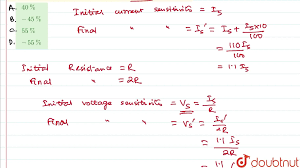 A. 40 %
B. -45 %
C. 55 %
D. -55 %
Initial current sensitivity = Is
Final " " = Is' = Is + Is×10/100
= 110 Is/100
= 1.1 Is
Initial Resistance = R
Final " = 2R
Initial voltage sensitivity = Vs = Is/R
Final " " = Vs' = Is'/2R
= 1.1 Is/2R
doubtnut